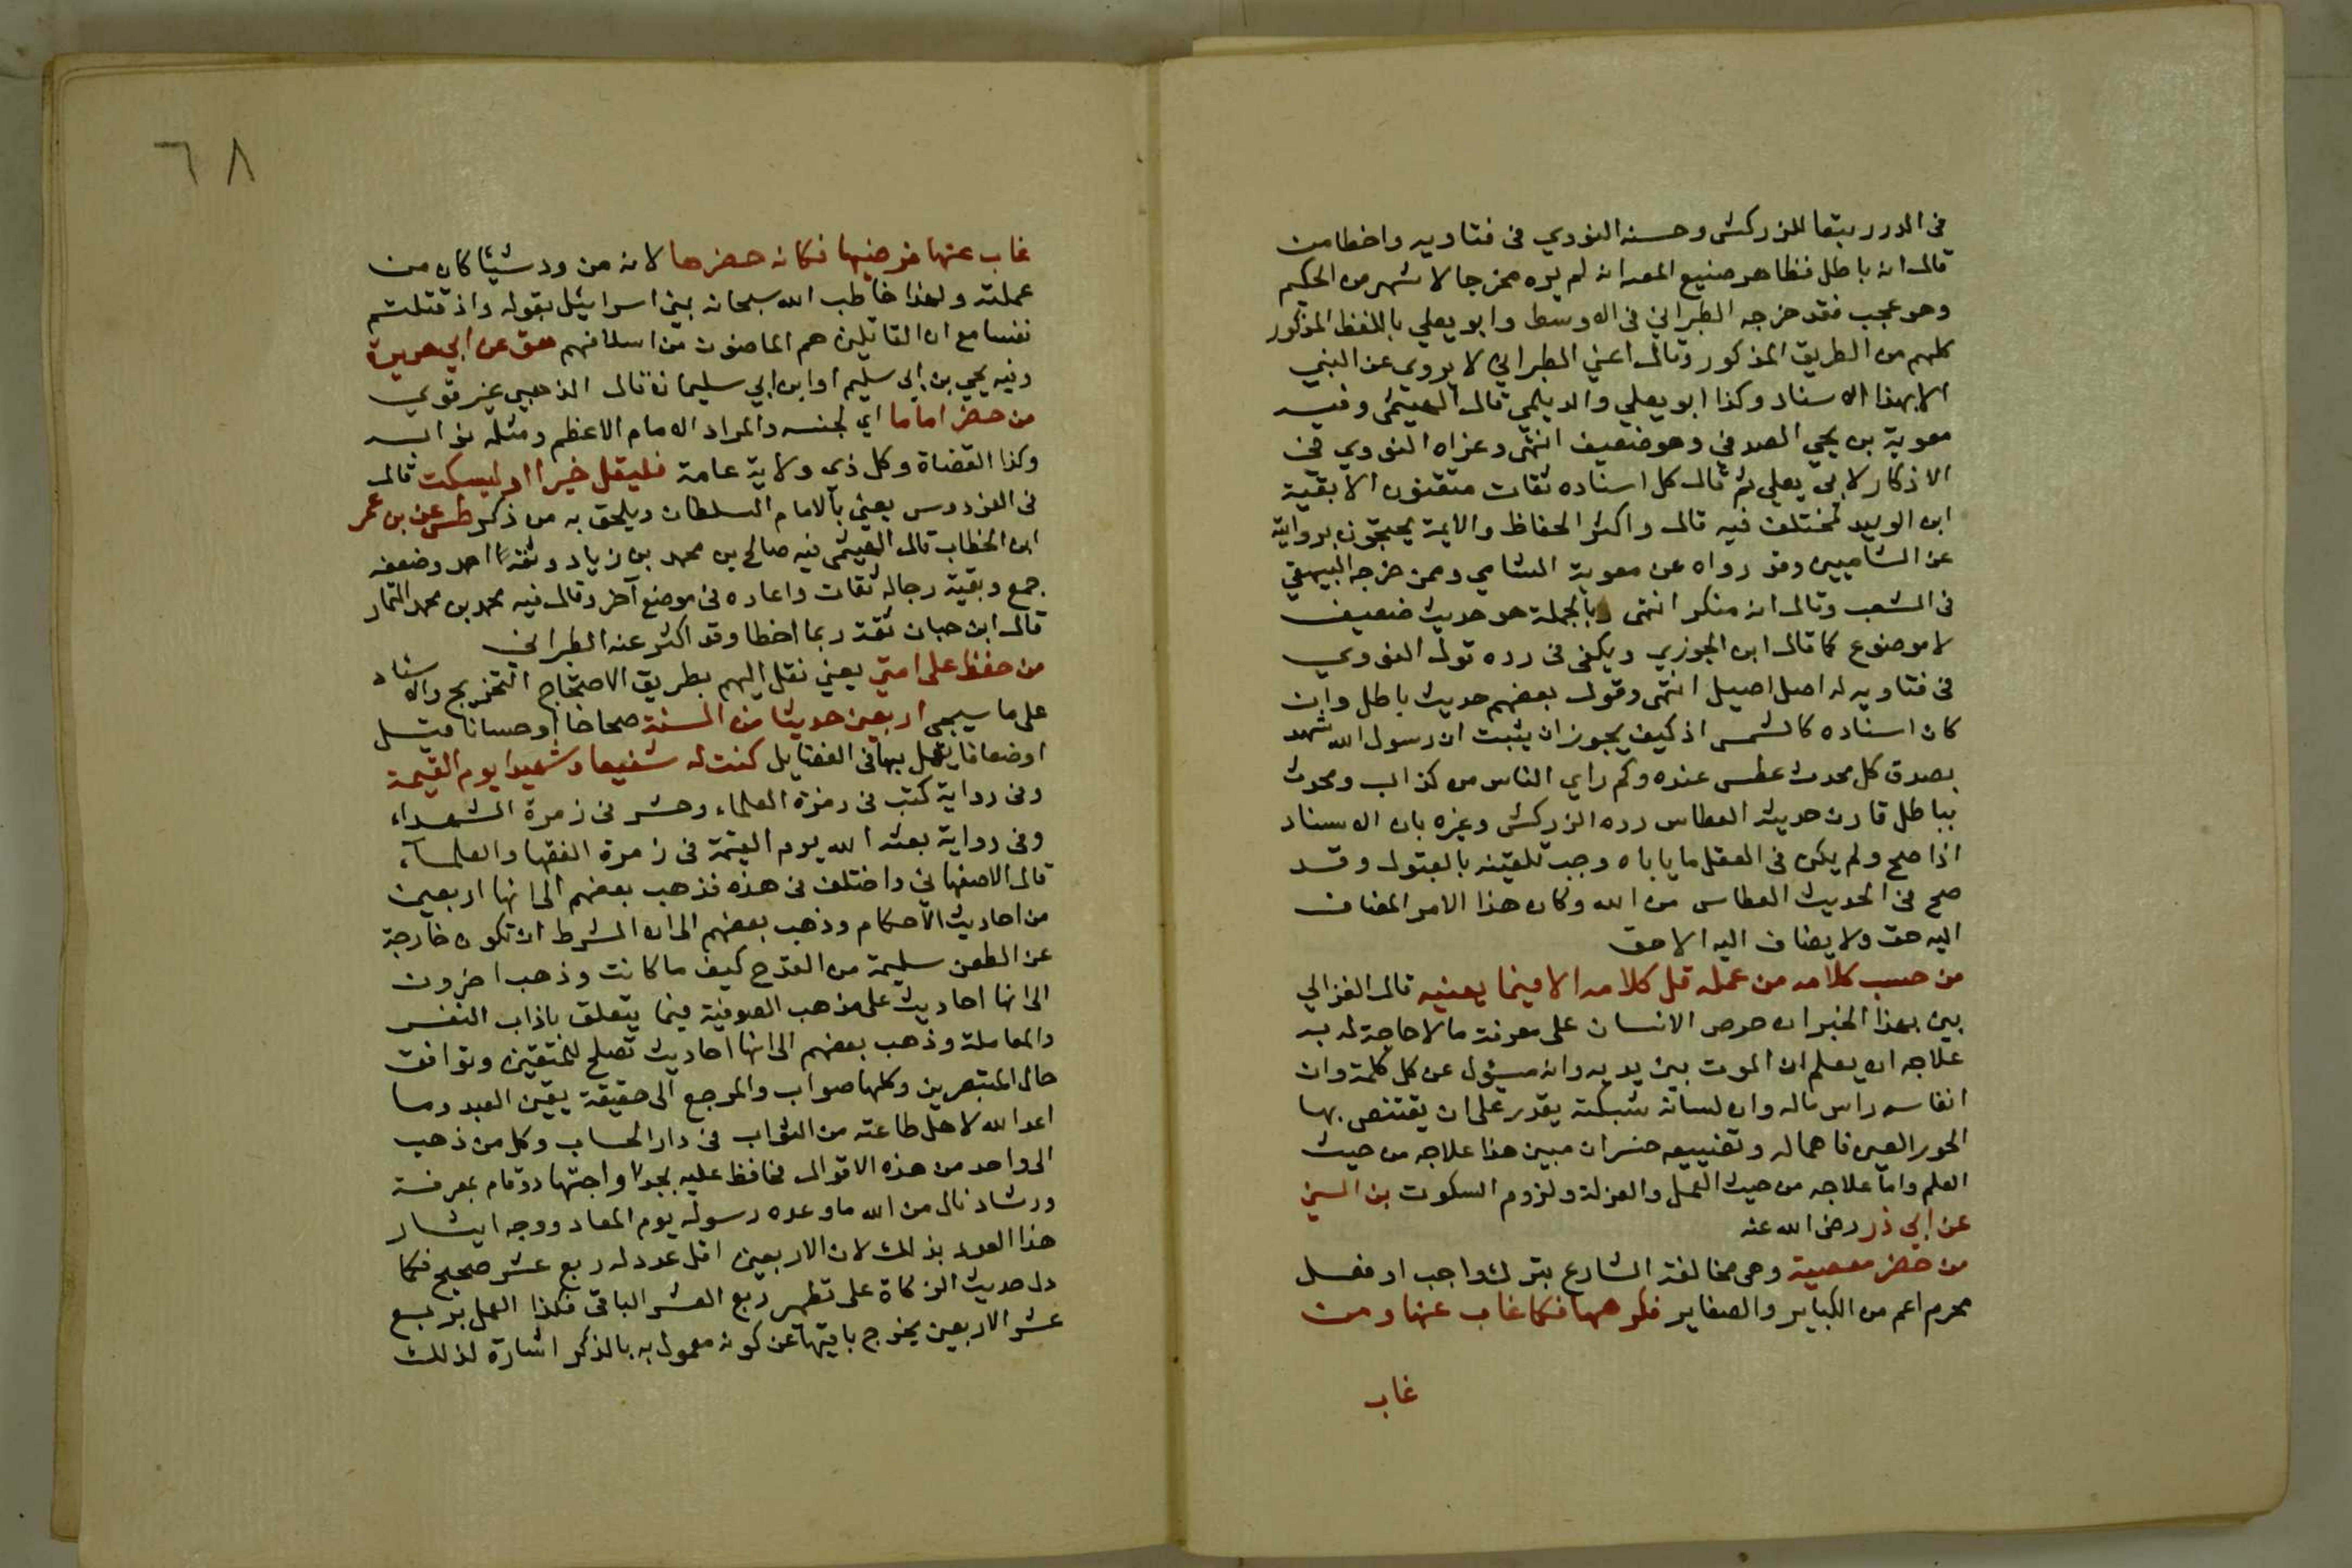 فى الدرر تبعا للزركشى وحسنه النووي فى فتاويه واخطا من
قال انه باطل فظاهر صنيع المص انه لم يره مخرجا لاشهر من الحكيم
وهو عجب فقد خرجه الطبراني فى الاوسط وابو يعلي باللفظ المذكور
كلهم من الطريق المذكور وقال اعني الطبراني لا يروي عن النبي
الا بهذا الاسناد وكذا ابو يعلي والديلمي قال الهيثمى وفيه
معوية بن يحيي الصدفي وهو ضعيف انتهى وعزاه النووي فى
الاذكار لابي يعلي ثم قال كل اسناده ثقات متقنون الا بقية
ابن الوليد فمختلف فيه قال واكثر الحفاظ والايمة يحتجون بروايته
عن الشاميين وقد رواه عن معوية الشامي وممن خرجه البيهقي
فى الشعب وقال انه منكر انتهى وبالجملة هو حديث ضعيف
لا موضوع كما قال ابن الجوزي ويكفى فى رده قول النووي
فى فتاويه له اصل اصيل انتهى وقول بعضهم حديث باطل وان
كان اسناده كالشمس اذ كيف يجوز ان يثبت ان رسول الله شهد
بصدق كل محدث عطس عنده وكم راي الناس من كذاب ومحدث
بباطل قارن حديثه العطاس رده الزركشى وغيره بان الاسناد
اذا صح ولم يكن فى العقل ما ياباه وجب تلقيه بالقبول وقد
صح فى الحديث العطاس من الله وكان هذا الامر المضاف
اليه حق ولا يضاف اليه الا حق
من حسب كلامه من عمله قل كلامه الا فيما يعنيه قال الغزالي
بين بهذا الخبر ان حرص الانسان على معرفة ما لا حاجة له به
علاجه ان يعلم ان الموت بين يديه وانه مسئول عن كل كلمة وان
انفاسه راس ماله وان لسانه شبكته يقدر على ان يقتنص بها
الحور العين فاهماله وتضييعه خسران مبين هذا علاجه من حيث
العلم واما علاجه من حيث العمل والعزلة ولزوم السكوت بن السني
عن ابي ذر رضى الله عنه
من حضر معصية وهى مخالفة الشارع بترك واجب او فعل
محرم اعم من الكباير والصغاير فكرهها فكما غاب عنها ومن
غاب
٦٨
غاب عنها فرضيها فكانه حضرها لانه من ود شيئا كان من
عملته ولهذا خاطب الله سبحانه بني اسرايئل بقوله واذ قتلتم
نفسا مع ان القاتلين هم الماضون من اسلافهم هق عن ابي هريرة
وفيه يحيي بن ابي سليم او ابن ابي سليمان قال الذهبي غير قوي
من حضر اماما اي لجنسه والمراد الامام الاعظم ومثله نوابه
وكذا القضاة وكل ذي ولاية عامة فليقل خيرا او ليسكت قال
فى الفردوس يعني بالامام السلطان ويلحق به من ذكر طس عن بن عمر
ابن الخطاب قال الهيثمى فيه صالح بن محمد بن زياد وثقه احمد وضعفه
جمع وبقية رجاله ثقات واعاده فى موضع آخر وقال فيه محمد بن محمد التمار
قال ابن حبان ثقة ربما اخطا وقد اكثر عنه الطبراني
من حفظ على امتي يعني نقل اليهم بطريق الاحتجاج التخريج والاسناد
على ما سيجى اربعين حديثا من السنة صحاحا او حسانا قيل
او ضعافا يعمل بها فى الفضايل كنت له شفيعا وشهيدا يوم القيمة
وفى رواية كتب فى زمرة العلماء وحشر فى زمرة الشهداء
وفى رواية بعثه الله يوم القيمة فى زمرة الفقها والعلماء
قال الاصفهاني واختلف فى هذه فذهب بعضهم الى انها اربعين
من احاديث الاحكام وذهب بعضهم الى ان الشرط ان تكون خارجة
عن الطعن سليمة من القدح كيف ما كانت وذهب اخرون
الى انها احاديث على مذهب الصوفية فيما يتعلق باذاب النفس
والمعاملة وذهب بعضهم الى انها احاديث تصلح للمتقين وتوافق
حال المتبصرين وكلها صواب والمرجع الى حقيقة يقين العبد وما
اعد الله لاهل طاعته من الثواب فى دار الحساب وكل من ذهب
الى واحد من هذه الاقوال فحافظ عليه بجد واجتهاد وقام بمعرفة
ورشاد نال من الله ما وعده رسوله يوم المعاد ووجه ايثار
هذا العدد بذلك لان الاربعين اقل عدد له ربع عشر صحيح فكما
دل حديث الزكاة على تطهير ربع العشر الباقى فكذا العمل بربع
عشر الاربعين يخرج باقيها عن كونه معمول به بالذكر اشارة لذلك